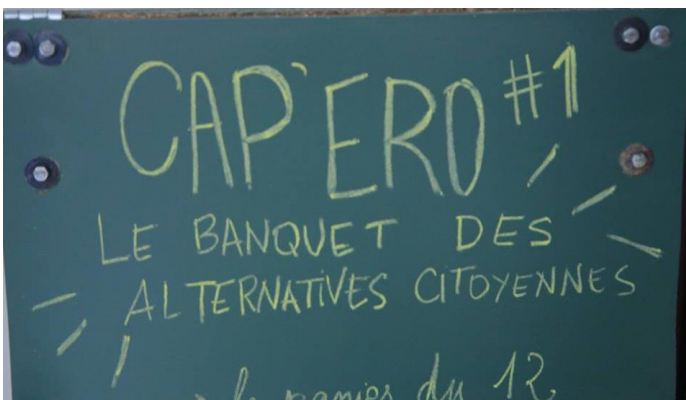 CAP'ERO #1
LE BANQUET DES
ALTERNATIVES CITOYENNES
le panier du 12